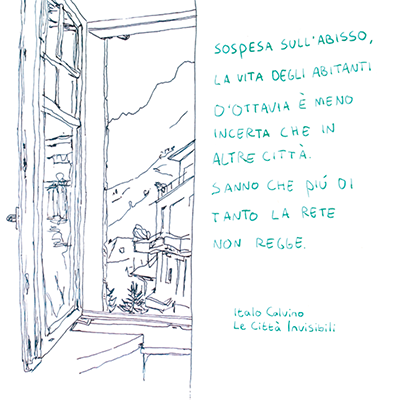 SOSPESA SULL'ABISSO,
LA VITA DEGLI ABITANTI
D'OTTAVIA È MENO
INCERTA CHE IN
ALTRE CITTÀ.
SANNO CHE PIÚ DI
TANTO LA RETE
NON REGGE.
Italo Calvino
Le Città Invisibili